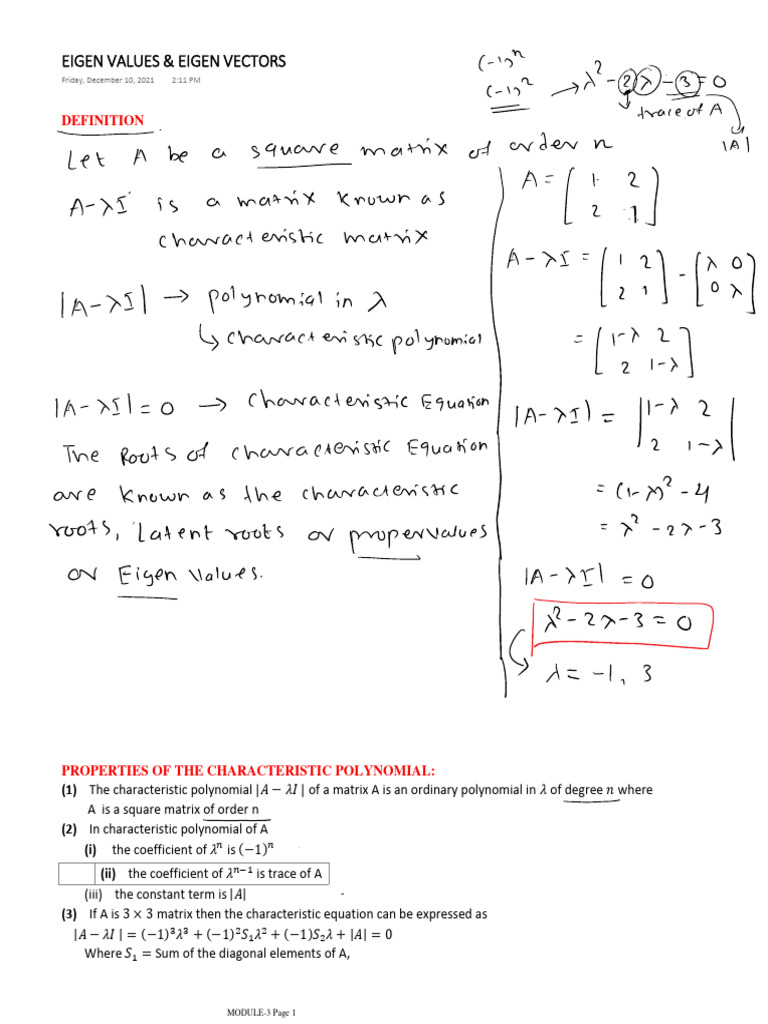 EIGEN VALUES & EIGEN VECTORS
Friday, December 10, 2021 2:11 PM
(-1)ⁿ
(-1)² → λ² - 2λ - 3 = 0
trace of A
|A|
DEFINITION
Let A be a square matrix of order n
A-λI is a matrix known as
characteristic matrix
|A-λI| → polynomial in λ
↳ characteristic polynomial
|A-λI| = 0 → Characteristic Equation
The Roots of characteristic Equation
are known as the characteristic
roots, Latent roots or proper values
or Eigen Values.
A = [1 2
2 1]
A-λI = [1 2
2 1] - [λ 0
0 λ]
= [1-λ 2
2 1-λ]
|A-λI| = |1-λ 2
2 1-λ|
= (1-λ)² - 4
= λ² - 2λ - 3
|A-λI| = 0
λ² - 2λ - 3 = 0
λ = -1, 3
PROPERTIES OF THE CHARACTERISTIC POLYNOMIAL:
(1) The characteristic polynomial |A − λI | of a matrix A is an ordinary polynomial in λ of degree n where
A is a square matrix of order n
(2) In characteristic polynomial of A
(i) the coefficient of λⁿ is (−1)ⁿ
(ii) the coefficient of λⁿ⁻¹ is trace of A
(iii) the constant term is |A|
(3) If A is 3 × 3 matrix then the characteristic equation can be expressed as
|A − λI | = (−1)³λ³ + (−1)²S₁λ² + (−1)S₂λ + |A| = 0
Where S₁ = Sum of the diagonal elements of A,
MODULE-3 Page 1